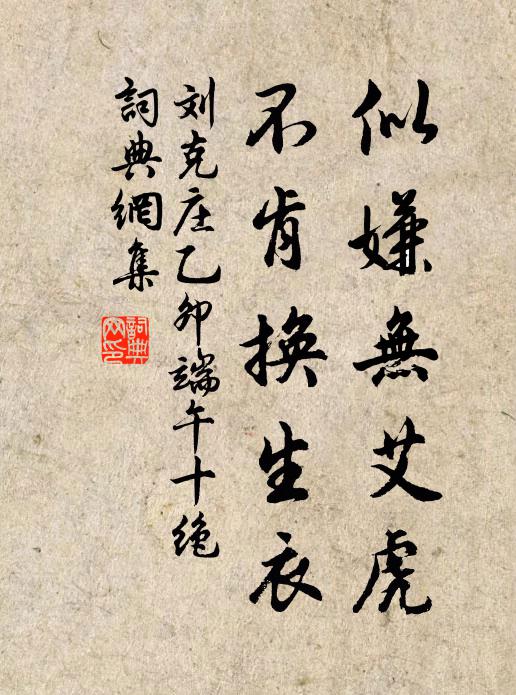 似嫌無艾虎
不肯換生衣
刘克庄乙卯端午十绝
詞典網集
詞典網印